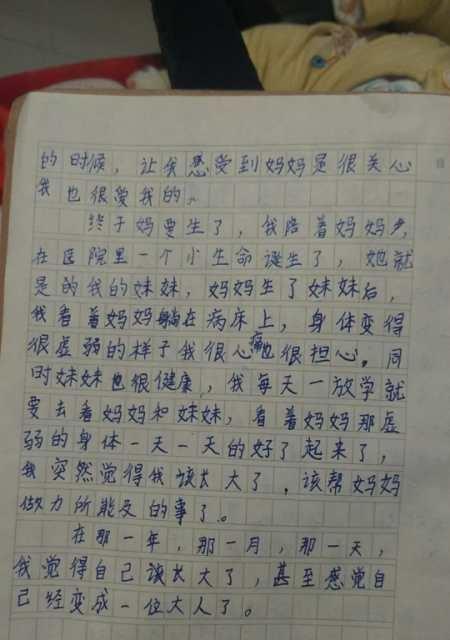 的时候，让我感受到妈妈是很关心
我也很爱我的。
终于妈要生了，我陪着妈妈去，
在医院里一个小生命诞生了，她就
是的我的妹妹，妈妈生了妹妹后，
我看着妈妈躺在病床上，身体变得
很虚弱的样子我很心痛也很担心。同
时妹妹也很健康，我每天一放学就
要去看妈妈和妹妹，看着妈妈那虚
弱的身体一天一天的好了起来了，
我突然觉得我该长大了，该帮妈妈
做力所能及的事了。
在那一年，那一月，那一天，
我觉得自己该长大了，甚至感觉自
己经变成一位大人了。